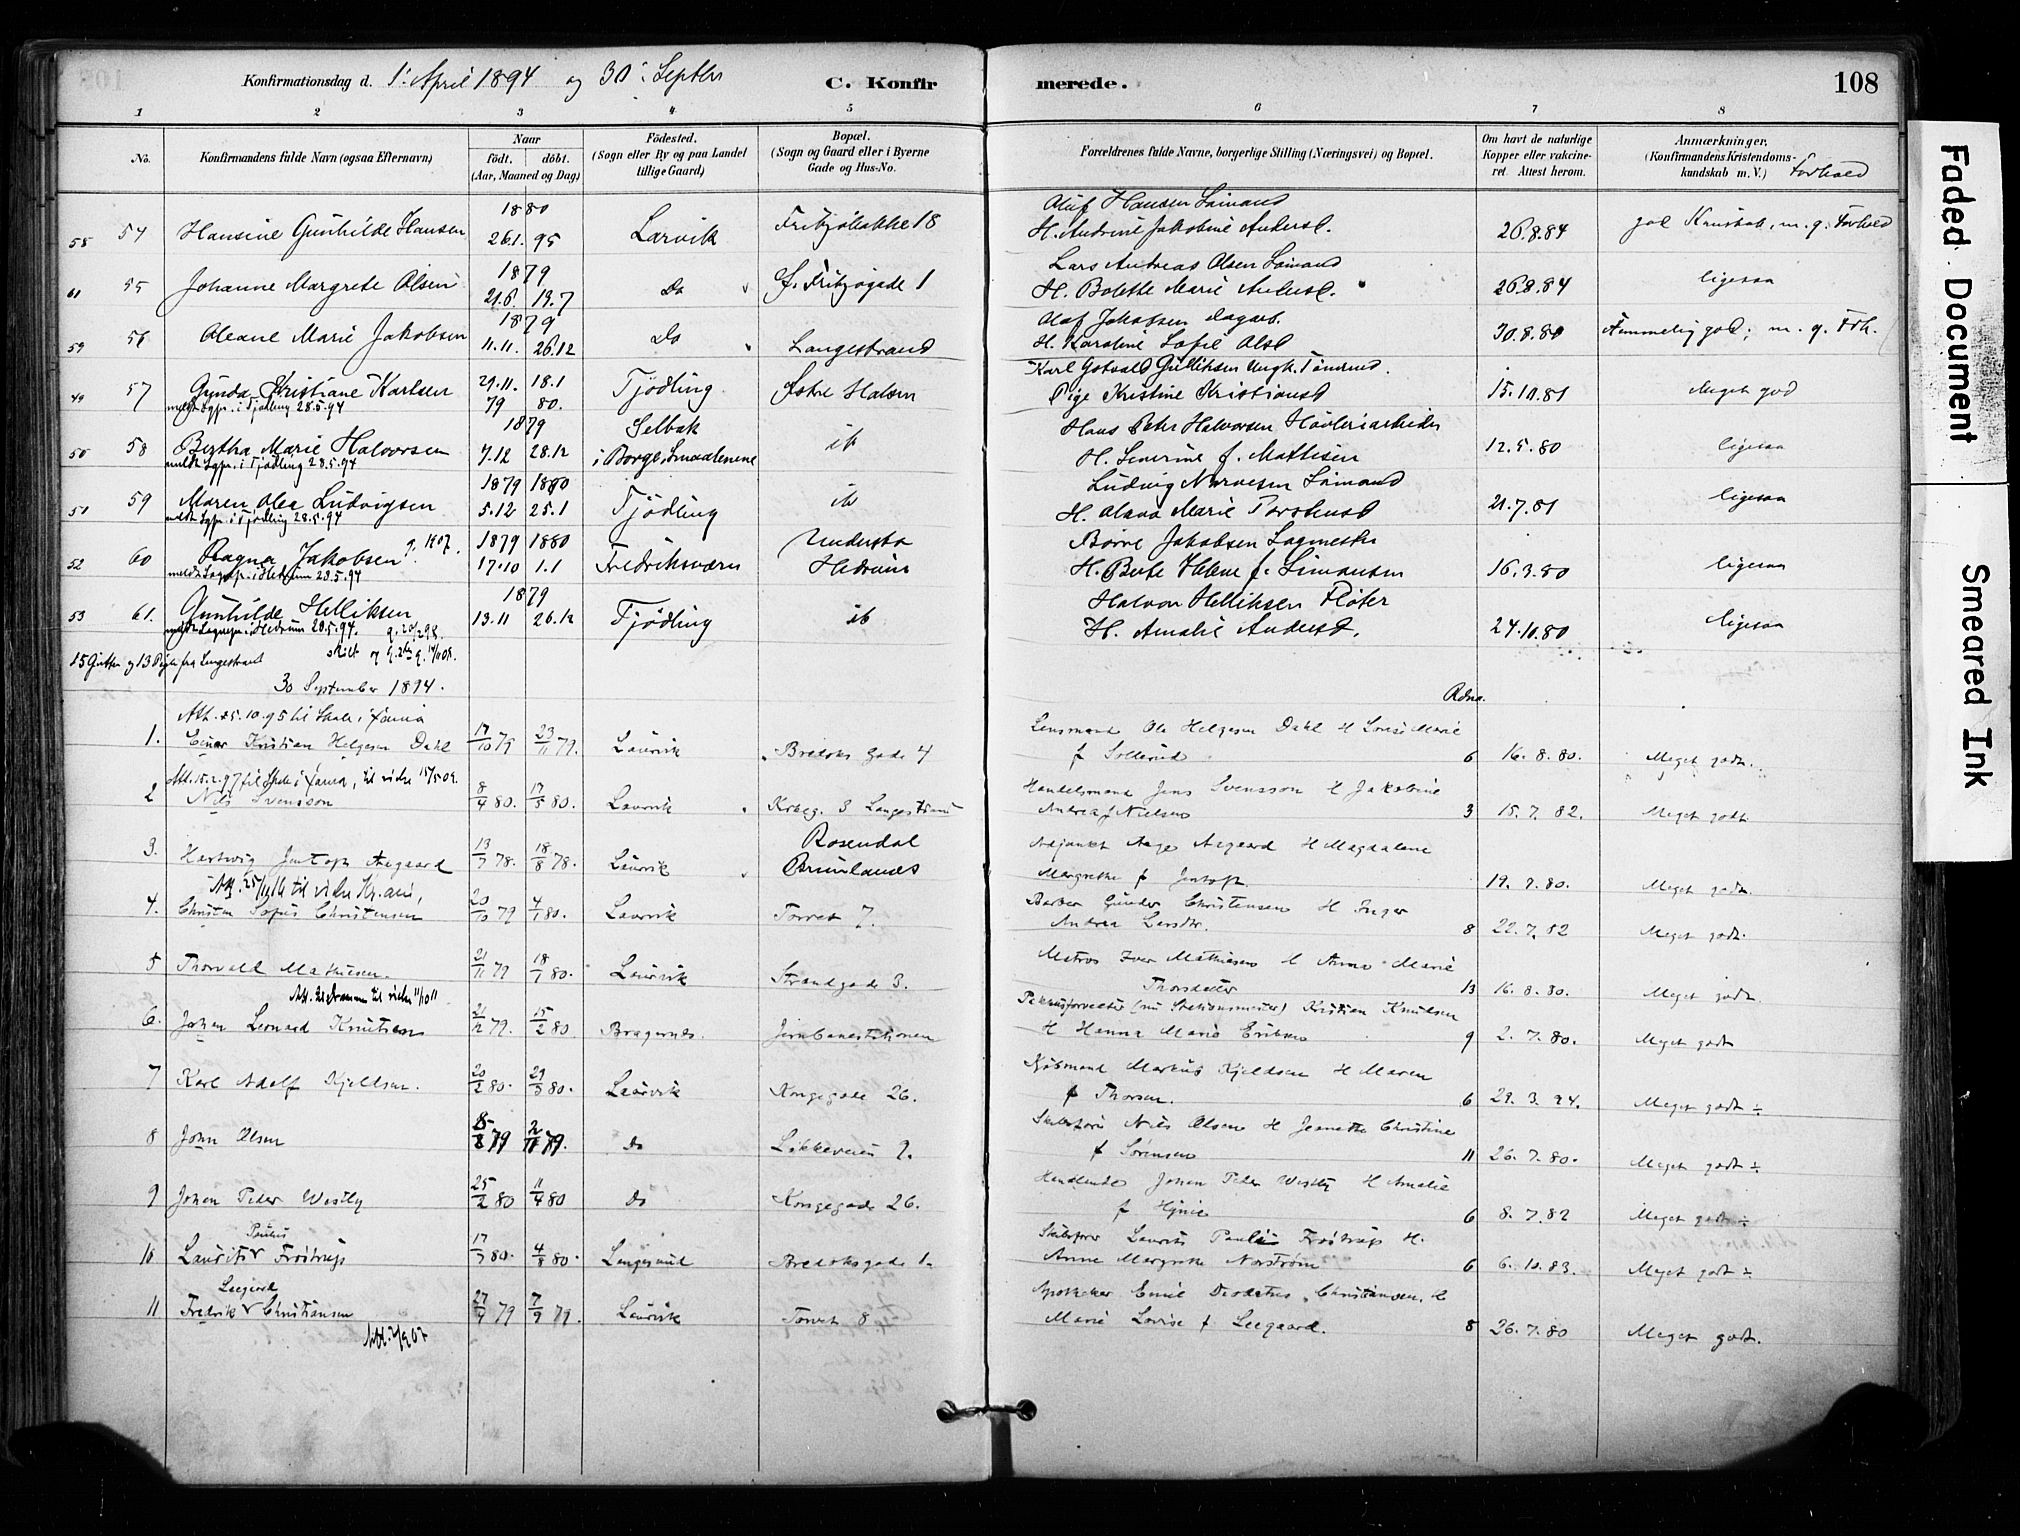 Konfirmationsdag d. 1. April 1894 og 30. Septbr
C. Konfirmerede.
108
1 2 3 4 5 6 7 8
No.
Konfirmandens fulde Navn (ogsaa Efternavn)
Naar
født. døbt.
(Aar, Maaned og Dag)
Fødested.
(Sogn eller By og paa Landet
tillige Gaard)
Bopæl.
(Sogn og Gaard eller i Byerne
Gade og Hus-No.
Forældrenes fulde Navne, borgerlige Stilling (Næringsvei) og Bopæl.
Om havt de naturlige
Kopper eller vakcine-
ret. Attest herom.
Anmærkninger,
(Konfirmandens Kristendoms-
kundskab m. V.) Forhold
58 54 Hansine Gunhilde Hansen 1880 26.1. 95 Larvik 18 Oluf Hansen Sømand
H. Andrine Jakobine Anders. 26.8.84 god Kundskab, m. g. Forhold
61 55 Johanne Margrete Olsen 1879 21.6. 19.7 Do 1 Lars Andreas Olsen Sømand
H. Bolette Marie Anders. 26.8.84 ligesaa
59 56 Oleane Marie Jakobsen 1879 11.11. 26.12 Do Langestrand Olaf Jakobsen Dagarb.
H. Karoline Sofie Ols. 30.8.80 Temmelig god; m. g. Forh.
49 57 Gunda Kristiane Karlsen 29.11. 79 18.1 80. Tjødling Østre Halsen Karl Gulliksen Ungk. Tømrmd.
meldt Sgpr. i Tjødling 28.5.94 Pige Kristine Kristians. 15.10.81 Meget god
50 58 Bertha Marie Halvorsen 1879 7.12 28.12 Selbak
i Borge, Smaalenene ib Hans Peter Halvorsen Høvleriarbeider
meldt Sgpr. i Tjødling 28.5.94 H. Severine f. Mathisen 12.5.80 ligesaa
51 59 Maren Olea Ludvigsen 1879 1880 5.12 25.1 Tjødling ib Ludvig Narvesen Sømand
meldt Sgpr. i Tjødling 28.5.94 H. Olava Marie Torstens. 21.7.81 ligesaa
52 60 Ragna Jakobsen g. 1907. 1879 1880 17.10 1.1 Fredriksværn Undersbo
Hedrum Børre Jakobsen Sagmester
meldt Sognepr. i Hedrum 28.5.94 H. Berte Helene f. Simonsen 16.3.80 ligesaa
53 61. Gunhilde Helliksen 1879 13.11 26.12 Tjødling ib Halvor Helliksen Fløter
meldt Sognepr. i Hedrum 28.5.94. H. Amalie Anders. 24.10.80 ligesaa
15 Gutter og 13 Piger fra Langestrand
30 September 1894.
Att. 25.10.95 til Skole i Xania
1. Einar Kristian Helgesen Dahl 17/10 79 23/11 79. Laurvik Bredoks Gade 4 Lensmand Ole Helgesen Dahl H Lovise Marie
f Sollerud 6 16.8.80. Meget godt.
Att. 15.2.97 til Skole i Xania, til vidre 15/5 09.
2 Nils Svensson 8/4 80. 17/5 80. Laurvik Kirkeg. 3 Langestrand Handelsmand Jens Svensson H Jakobine
Andrea f Nielsen 3 15.7.82. Meget godt
3. Hartvig Jentoft Aagaard 13/7 78. 18/8 78. Laurvik Rosendal
Brunlanes Adjunkt Aage Aagaard H Magdalene
Margrethe f Jentoft. 19.7.80. Meget godt.
Att. 25/10/16 til vidre Kr.ania,
4. Christen Sofus Christensen 20/10 79 4/1 80. Laurvik Torvet 7. Barber Gunder Christensen H Inger
Andrea Larsdtr. 8 22.7.82 Meget godt.
5 Thorvald Mathisen. 21/11 79 18/1 80. Laurvik Strandgade 3. Matros Iver Mathisen H Anne Marie
Thorsdatter 13 16.8.80. Meget godt.
6. Johan Leonard Knutsen 21/12 79. 15/2 80 Bragernes. Jernbanestationen Pakhusforvalter (nu Stationsmester) Kristian Knudsen
H Hanna Marie Eriksen 9 2.7.80. Meget godt
7 Karl Adolf Kjeldsen. 20/2 80. 29/3 80. Laurvik Kongegade 26. Kjøbmand Markus Kjeldsen H Maren
f Thorsen. 6 29.3.94. Meget godt ÷
8 John Olsen 15/8 79 2/11 79. Do Likkeveien 9. Skibsfører Nils Olsen H Jeanette Christine
f Sørensen 11 26.7.80. Meget godt ÷
9 Johan Peter Westby 25/2 80 11/4 80 Do Kongegade 26. Handlende Johan Peter Westby H Amalie
f 6 8.7.82 Meget godt ÷
Paulus
10 Laurits Frøstrup 17/7 80. 4/8 80. Langesund Bredoksgade 1. Skibsfører Laurits Paulus Frøstrup H.
Anne Margrethe Norstrøm 6 6.10.83. Meget godt ÷
Leegaard
11 Fredrik Christiansen 27/7 79 7/9 79. Laurvik Torvet 8 Apotheker Emil Deodatus Christiansen, H
Marie Lovise f Leegaard. 8 26.7.80 Meget godt.
Faded Document
Smeared Ink